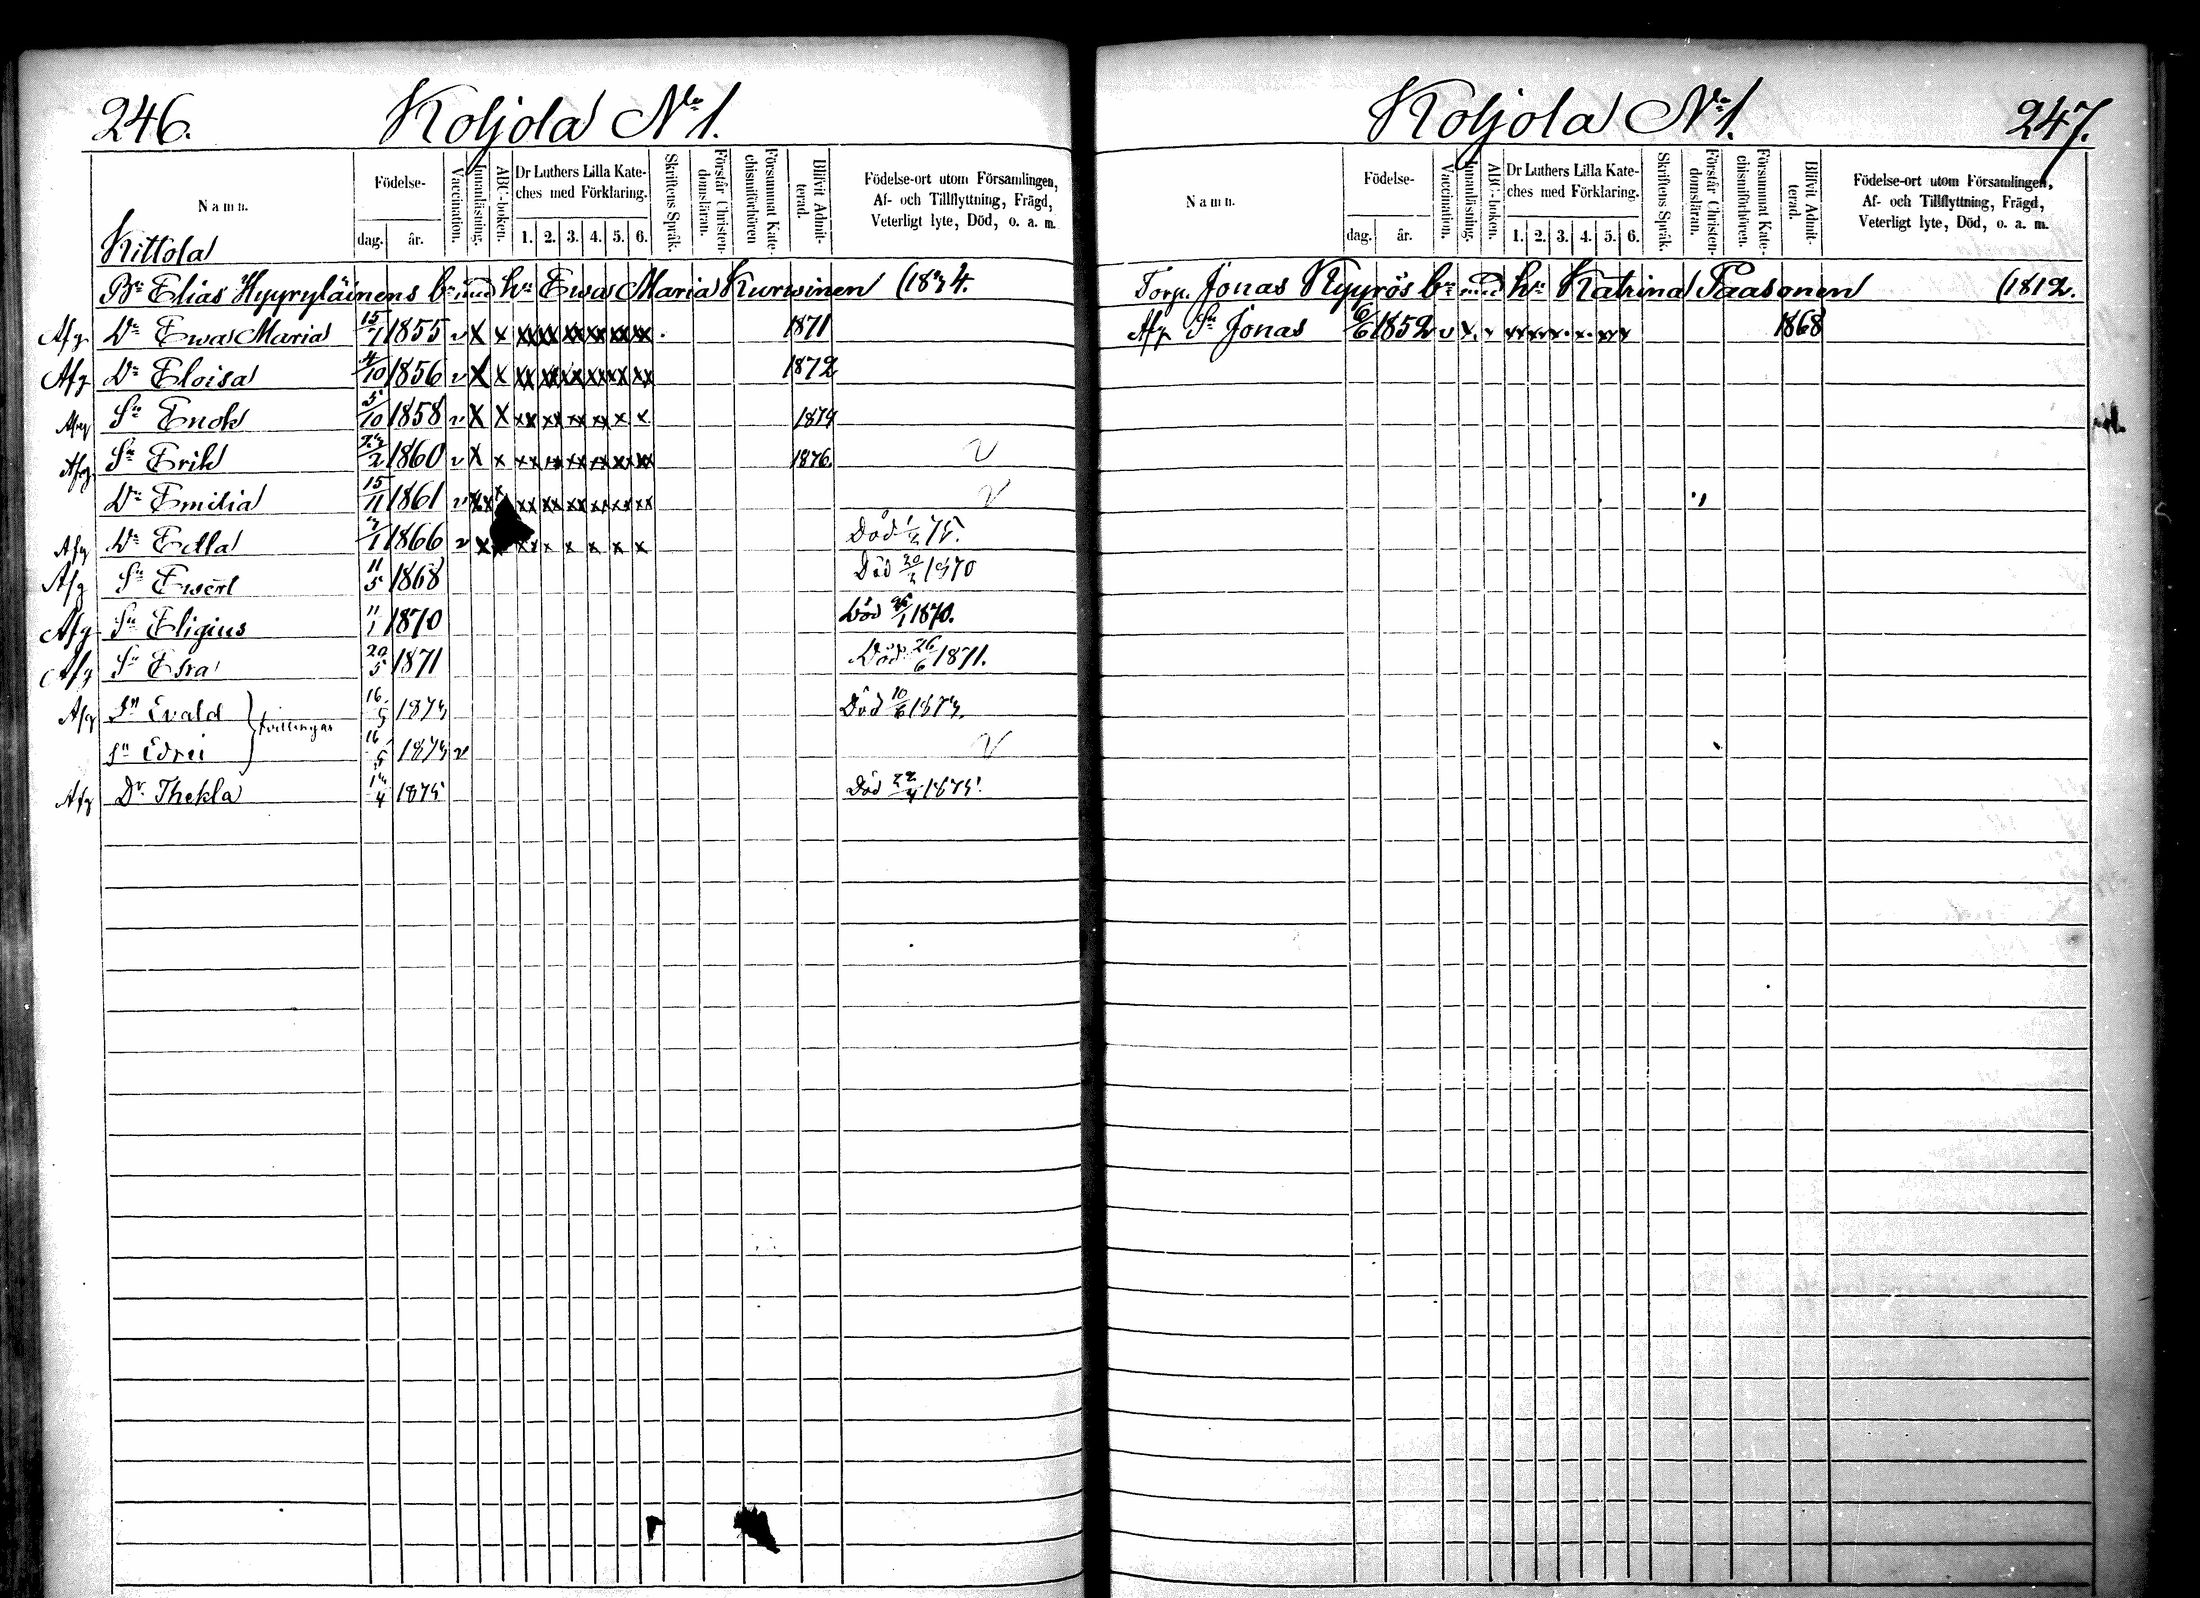 246. Koljola No 1.
Namn.
Födelse-
dag. år.
Vaccination.
Innanläsning.
ABC-boken.
Dr Luthers Lilla Kate-
ches med Förklaring.
1. 2. 3. 4. 5. 6.
Skriftens Språk.
Förstår Christen-
domsläran.
Försummat Kate-
chismiförhören
Blifvit Admit-
terad.
Födelse-ort utom Församlingen,
Af- och Tillflyttning, Frägd,
Veterligt lyte, Död, o. a. m.
Kittola
Bn Elias Hyyryläinens bn med hu Ewa Maria Kurwinen (1834.
Afg Dr Ewa Maria 15/1 1855 v x x xx xx xx xx xx xx 1871
Afg Dr Eloisa 4/10 1856 v x x xx xx xx xx xx xx 1872
Afg Sn Enok 5/10 1858 v x x xx xx xx xx x x 1874
Afg. Sn Erik 2 1860 v x x xx xx xx xx xx xx 1876. v
Dr Emilia 15/11 1861 v xx x xx xx xx xx xx xx v
Afg Dr Edla 1 1866 v x xx x x x x x Död 75.
Afg Sn Ewert 11/5 1868 Död 20 1870
Afg Sn Eligius 11/1 1870 Död 1870.
Afg Sn Esra 20/5 1871 Död 26/6 1871.
Afg Sn Evald } tvillingar 16/5 1874 Död 10/6 1874.
Sn Edvei 16/5 1874 v v
Afg Dr Thekla 4 1875 Död 22/4 1875.
Koljola No 1. 247.
Namn.
Födelse-
dag. år.
Vaccination.
Innanläsning.
ABC-boken.
Dr Luthers Lilla Kate-
ches med Förklaring.
1. 2. 3. 4. 5. 6.
Skriftens Språk.
Förstår Christen-
domsläran.
Försummat Kate-
chismiförhören.
Blifvit Admit-
terad.
Födelse-ort utom Församlingen,
Af- och Tillflyttning, Frägd,
Veterligt lyte, Död, o. a. m.
Torp. Jonas Nyyrös bn med hu Katrina Paasonen (1812.
Afg Sn Jonas 6/6 1852 v x x xx xx x x xx x 1868